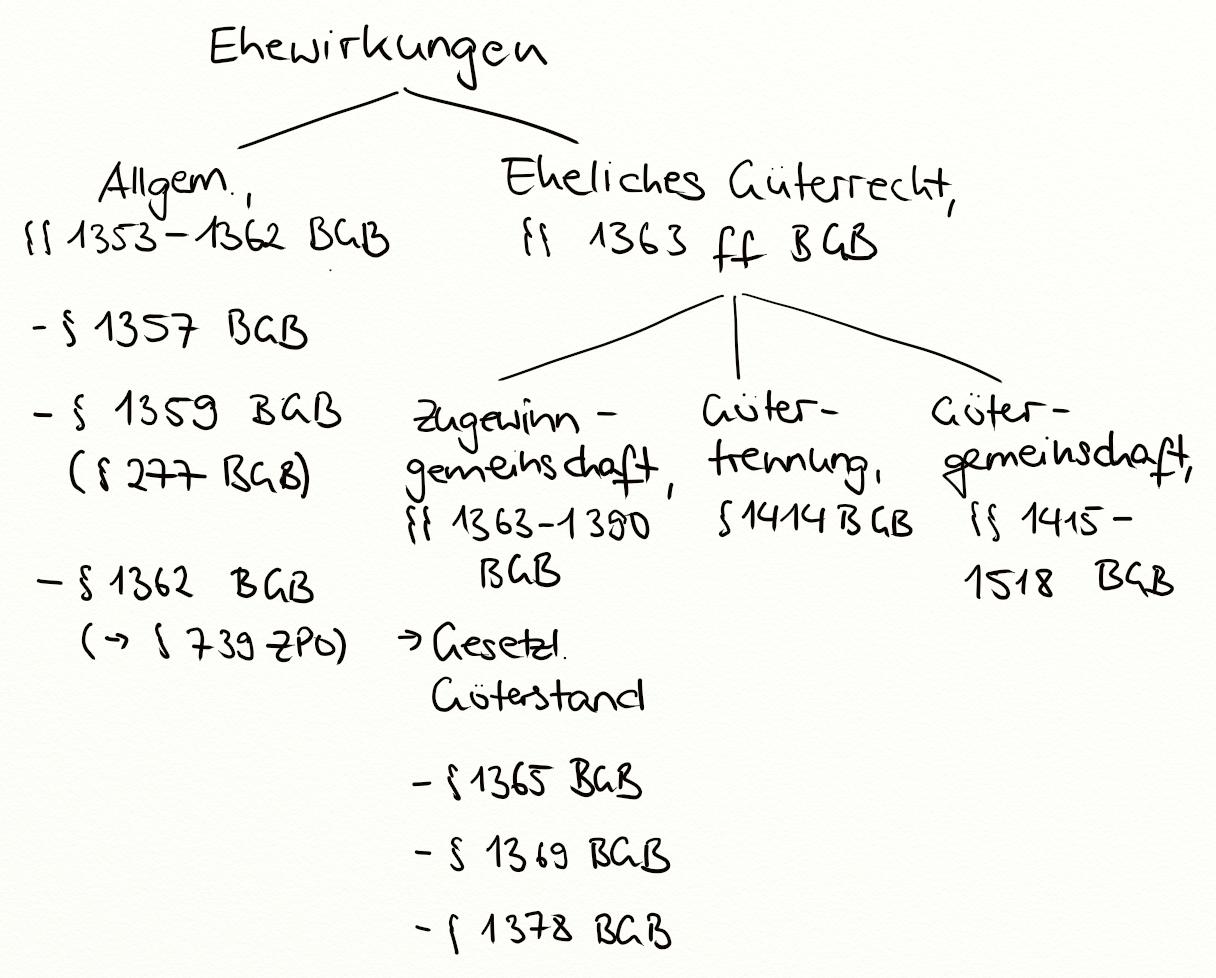 Ehewirkungen
Allgem.,
§§ 1353-1362 BGB
- § 1357 BGB
- § 1359 BGB
(§ 277 BGB)
- § 1362 BGB
(→ § 739 ZPO)
Eheliches Güterrecht,
§§ 1363 ff BGB
Zugewinn-
gemeinschaft,
§§ 1363-1390
BGB
→ Gesetzl.
Güterstand
- § 1365 BGB
- § 1369 BGB
- § 1378 BGB
Güter-
trennung,
§ 1414 BGB
Güter-
gemeinschaft,
§§ 1415-
1518 BGB